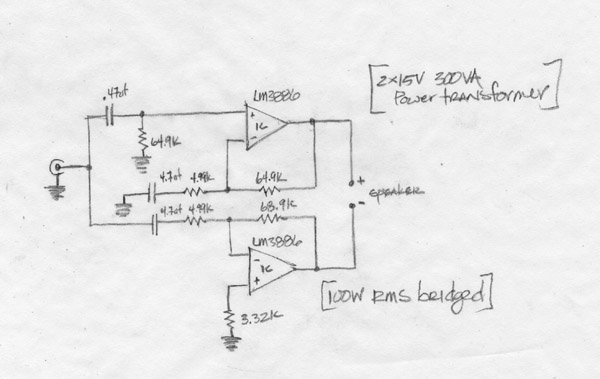 .47uf
LM3886
[2x15V 300VA
Power transformer]
+
IC
-
64.9K
4.7uf 4.99K 64.9K
+
speaker
-
4.7uf 4.99K 68.9K
LM3886
-
IC
+
[100W RMS bridged]
3.32K